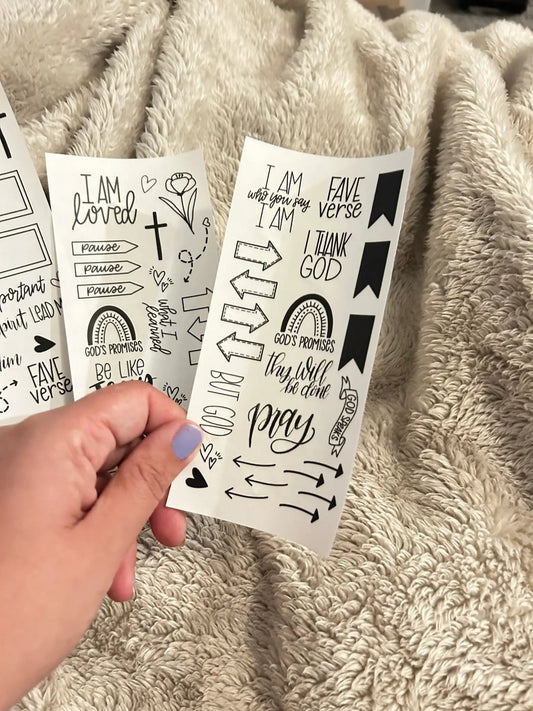 I AM
who you say
I AM
FAVE
verse
I THANK
GOD
GOD'S PROMISES
thy will
be done
BUT GOD
pray
GOD SPEAKS
I AM
loved
pause
pause
pause
what I
learned
GOD'S PROMISES
BE LIKE
LEAD
FAVE
verse